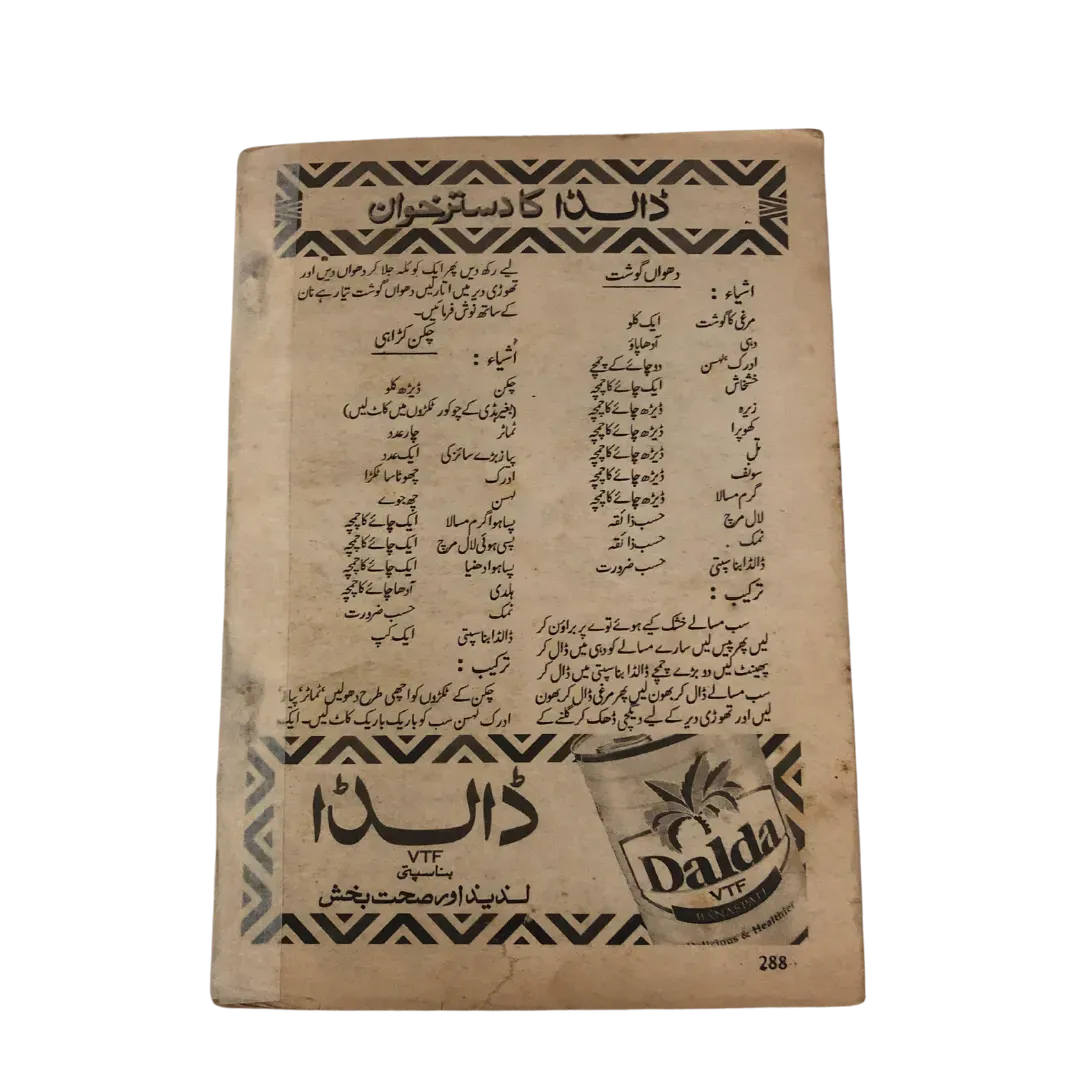 ڈالڈا کا دسترخوان
دھواں گوشت
اشیاء :
مرغی کا گوشت ایک کلو
دہی آدھا پاؤ
ادرک، لہسن دو چائے کے چمچے
خشخاش ایک چائے کا چمچہ
زیرہ ڈیڑھ چائے کا چمچہ
کھوپرا ڈیڑھ چائے کا چمچہ
تل ڈیڑھ چائے کا چمچہ
سونف ڈیڑھ چائے کا چمچہ
گرم مسالا ڈیڑھ چائے کا چمچہ
لال مرچ حسب ذائقہ
نمک حسب ذائقہ
ڈالڈا بناسپتی حسب ضرورت
ترکیب :
سب مسالے خشک کیے ہوئے توے پر براؤن کر
لیں پھر پیس لیں سارے مسالے کو دہی میں ڈال کر
پھینٹ لیں دو بڑے چمچے ڈالڈا بناسپتی میں ڈال کر
سب مسالے ڈال کر بھون لیں پھر مرغی ڈال کر بھون
لیں اور تھوڑی دیر کے لیے دیگچی ڈھک کر گلنے کے
لیے رکھ دیں پھر ایک کوئلہ جلا کر دھواں دیں اور
تھوڑی دیر میں اتار لیں دھواں گوشت تیار ہے نان
کے ساتھ نوش فرمائیں۔
چکن کڑاہی
اشیاء :
چکن ڈیڑھ کلو
(بغیر ہڈی کے چوکور ٹکڑوں میں کاٹ لیں)
ٹماٹر چار عدد
پیاز بڑے سائز کی ایک عدد
ادرک چھوٹا سا ٹکڑا
لہسن چھ جوے
پسا ہوا گرم مسالا ایک چائے کا چمچہ
پسی ہوئی لال مرچ ایک چائے کا چمچہ
پسا ہوا دھنیا ایک چائے کا چمچہ
ہلدی آدھا چائے کا چمچہ
نمک حسب ضرورت
ڈالڈا بناسپتی ایک کپ
ترکیب :
چکن کے ٹکڑوں کو اچھی طرح دھولیں، ٹماٹر، پیاز،
ادرک لہسن سب کو باریک باریک کاٹ لیں۔ ایک
ڈالڈا
VTF
بناسپتی
لذیذ اور صحت بخش
Dalda
VTF
BANASPATI
Delicious & Healthier
288